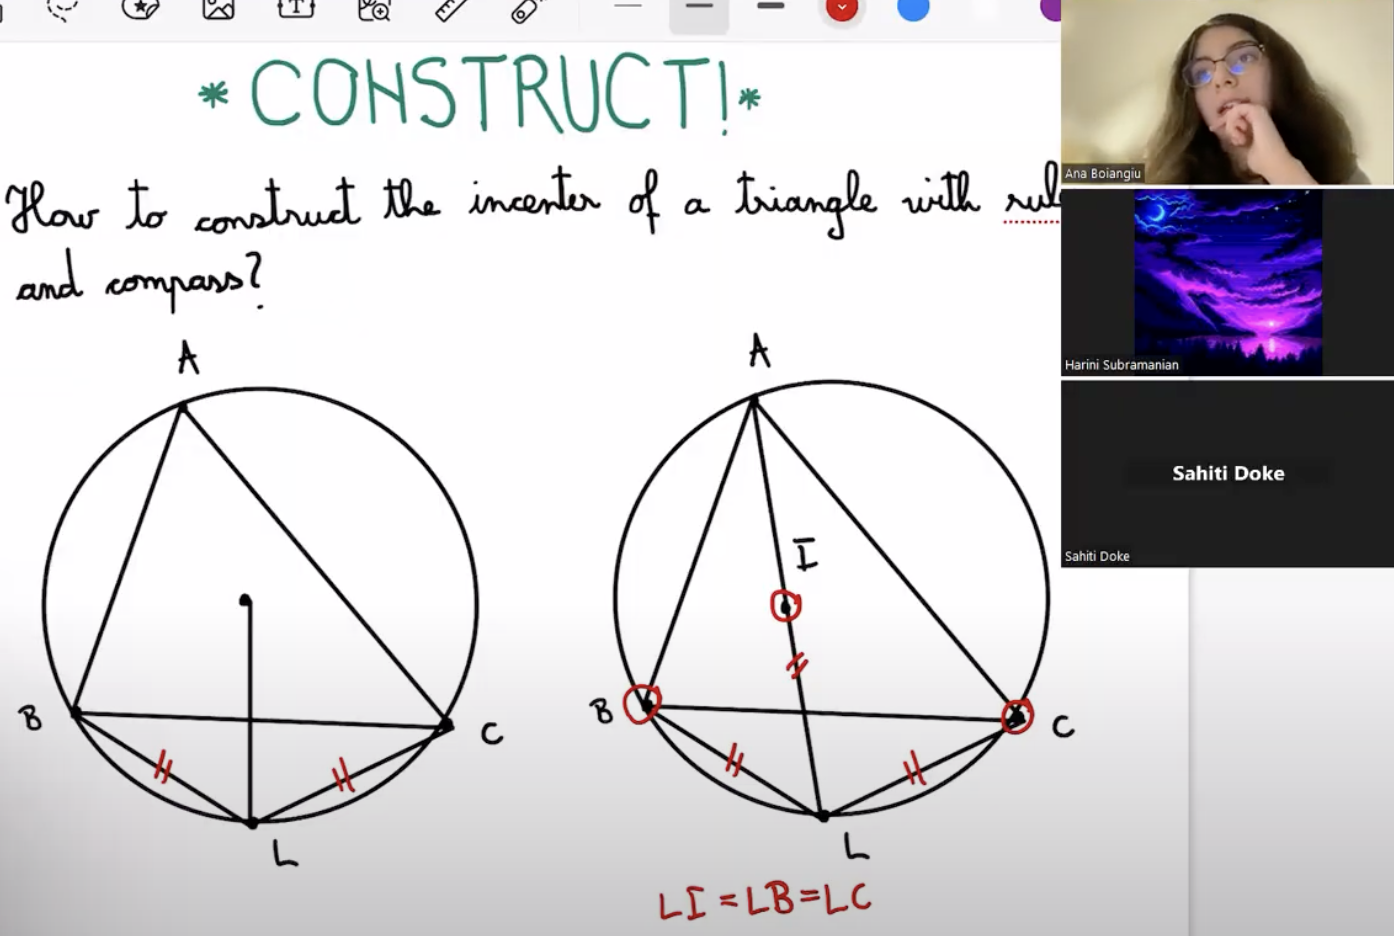 * CONSTRUCT! *
How to construct the incenter of a triangle with
and compass?
A
B
C
L
A
I
B
C
L
LI = LB = LC
Ana Boiangiu
Harini Subramanian
Sahiti Doke
Sahiti Doke